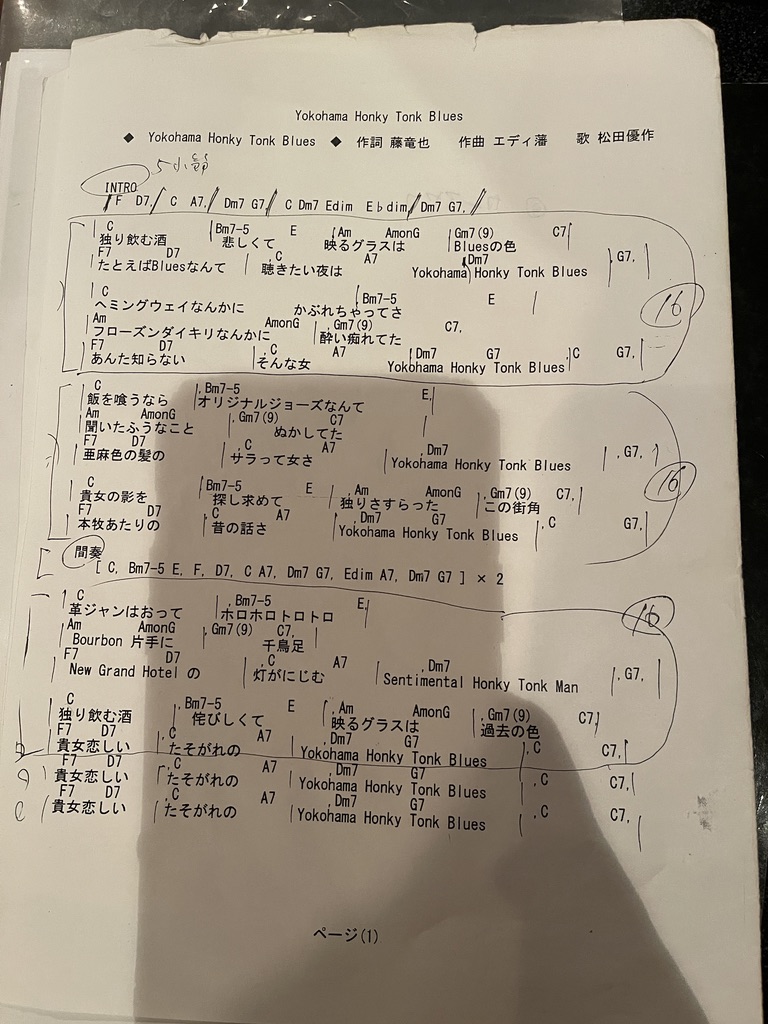 Yokohama Honky Tonk Blues
◆ Yokohama Honky Tonk Blues ◆ 作詞 藤竜也 作曲 エディ藩 歌 松田優作
5小節
INTRO
/ F D7, / C A7, / Dm7 G7, / C Dm7 Edim E♭dim, / Dm7 G7, /
| C | Bm7-5 E | , Am AmonG | Gm7(9) C7 |
独り飲む酒 悲しくて 映るグラスは Bluesの色
F7 D7 | , C A7 | Dm7 | , G7, |
たとえばBluesなんて 聴きたい夜は Yokohama Honky Tonk Blues
| C | Bm7-5 E |
ヘミングウェイなんかに かぶれちゃってさ
Am AmonG | , Gm7(9) C7,
フローズンダイキリなんかに 酔い痴れてた
F7 D7 | , C A7 | Dm7 G7 | C G7, |
あんた知らない そんな女 Yokohama Honky Tonk Blues
16
| C | , Bm7-5 E, |
飯を喰うなら オリジナルジョーズなんて
Am AmonG | , Gm7(9) C7 |
聞いたふうなこと ぬかしてた
F7 D7 | , C A7 | , Dm7 | , G7, |
亜麻色の髪の サラって女さ Yokohama Honky Tonk Blues
| C | Bm7-5 E | , Am AmonG | , Gm7(9) C7, |
貴女の影を 探し求めて 独りさすらった この街角
F7 D7 | , C A7 | , Dm7 G7 | , C G7, |
本牧あたりの 昔の話さ Yokohama Honky Tonk Blues
16
間奏
[ C, Bm7-5 E, F, D7, C A7, Dm7 G7, Edim A7, Dm7 G7 ] × 2
| C | , Bm7-5 E, |
革ジャンはおって ホロホロトロトロ
Am AmonG | , Gm7(9) C7, |
Bourbon 片手に 千鳥足
F7 D7 | , C A7 | , Dm7 | , G7, |
New Grand Hotel の 灯がにじむ Sentimental Honky Tonk Man
| C | , Bm7-5 E | , Am AmonG | , Gm7(9) C7, |
独り飲む酒 侘びしくて 映るグラスは 過去の色
F7 D7 | , C A7 | , Dm7 G7 | , C C7, |
貴女恋しい たそがれの Yokohama Honky Tonk Blues
16
F7 D7 | , C A7 | , Dm7 G7 | , C C7, |
貴女恋しい たそがれの Yokohama Honky Tonk Blues
F7 D7 | , C A7 | , Dm7 G7 | , C C7, |
貴女恋しい たそがれの Yokohama Honky Tonk Blues
ページ(1)